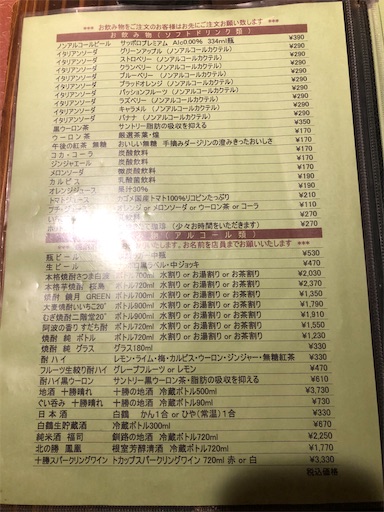 *** お飲み物をご注文のお客様はお先にご注文お願い致します ***
お飲み物(ソフトドリンク類)
ノンアルコールビール サッポロプレミアム Alc0.00% 334ml瓶 ¥390
イタリアンソーダ グリーンアップル (ノンアルコールカクテル) ¥290
イタリアンソーダ ストロベリー (ノンアルコールカクテル) ¥290
イタリアンソーダ クランベリー (ノンアルコールカクテル) ¥290
イタリアンソーダ ブルーベリー (ノンアルコールカクテル) ¥290
イタリアンソーダ ブラッドオレンジ (ノンアルコールカクテル) ¥290
イタリアンソーダ パッションフルーツ (ノンアルコールカクテル) ¥290
イタリアンソーダ ラズベリー (ノンアルコールカクテル) ¥290
イタリアンソーダ キャラメル (ノンアルコールカクテル) ¥290
イタリアンソーダ バナナ (ノンアルコールカクテル) ¥290
黒ウーロン茶 サントリー脂肪の吸収を抑える ¥350
ウーロン茶 厳選茶葉・煌 ¥170
午後の紅茶 無糖 おいしい無糖 手摘みダージリンの澄みきったおいしさ ¥170
コカ・コーラ 炭酸飲料 ¥170
ジンジャエール 炭酸飲料 ¥170
メロンソーダ 微炭酸飲料 ¥170
カルピス 乳酸菌飲料 ¥170
オレンジジュース 果汁30% ¥170
トマトジュース カゴメ国産トマト100%リコピンたっぷり ¥210
オレンジ or メロンソーダ or ウーロン茶 or コーラ ¥110
珈琲 (少々お時間をいただきます) ¥270
(アルコール類)
致します。お名前を店員までお願いいたします ***
瓶ビール 中瓶 ¥530
生ビール 黒ラベル・中ジョッキ ¥470
本格焼酎さつま白波 700ml 水割り or お湯割り or お茶割り ¥2,030
本格芋焼酎 桜島 720ml 水割り or お湯割り or お茶割り ¥2,370
焼酎 鏡月 GREEN 700ml 水割り or お湯割り or お茶割り ¥1,790
大麦焼酎いいちこ20° ボトル720ml 水割り or お湯割り or お茶割り ¥1,790
むぎ焼酎二階堂20° ボトル720ml 水割り or お湯割り or お茶割り ¥1,910
阿波の香り すだち酎 ボトル720ml 水割り or お湯割り or お茶割り ¥1,550
焼酎 純 ボトル ボトル720ml 水割り or お湯割り or お茶割り ¥1,230
焼酎 純 グラス グラス180ml ¥330
酎ハイ レモン・ライム・梅・カルピス・ウーロン・ジンジャー・無糖紅茶 ¥330
フルーツ生絞り酎ハイ グレープフルーツ or レモン ¥470
酎ハイ黒ウーロン サントリー黒ウーロン茶・脂肪の吸収を抑える ¥610
地酒 十勝晴れ 十勝の地酒 冷蔵ボトル500ml ¥3,730
ぐい呑み 十勝晴れ 十勝の地酒 冷蔵ボトル90ml ¥730
日本酒 白鶴 かん1合 or ひや(常温)1合 ¥330
白鶴生貯蔵酒 冷蔵ボトル300ml ¥670
純米酒 福司 釧路の地酒 冷蔵ボトル720ml ¥2,250
北の勝 鳳凰 根室芳醇清酒 冷蔵ボトル720ml ¥1,770
十勝スパークリングワイン トカップスパークリングワイン 720ml 赤 or 白 ¥3,330
税込価格